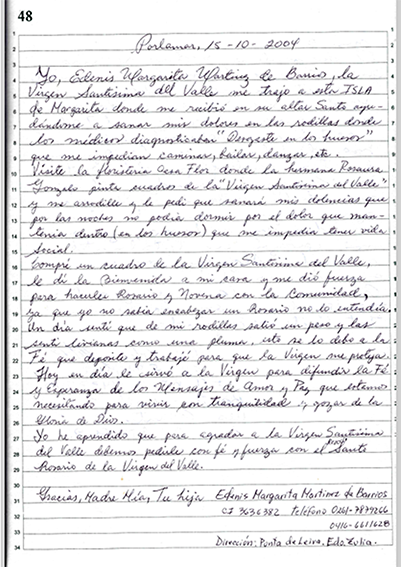 48
Porlamar, 15-10-2004
Yo, Edenis Margarita Martinez de Barrios, la
Virgen Santísima del Valle me trajo a esta ISLA
de Margarita donde me recibió en su altar Santo ayu-
dándome a sanar mis dolores en las rodillas donde
los médicos diagnosticaban "Desgaste en los huesos"
que me impedían caminar, bailar, danzar, etc.
Visite la floristería Casa Flor donde la hermana Rosaura
Gonzalo pinta cuadros de la "Virgen Santísima del Valle"
y me arrodille y le pedi que sanará mis dolencias que
por las noches no podía dormir por el dolor que man-
tenía dentro (en los huesos) que me impedía tener vida
social.
Compré un cuadro de la Virgen Santísima del Valle,
le di la Bienvenida a mi casa y me dió fuerza
para hacerles Rosario y Novena con la Comunidad,
ya que yo no sabía encabezar un Rosario no lo entendía.
Un día sentí que de mi rodillas salió un peso y las
sentí livianas como una pluma, esto se lo debo a la
Fé que deposite y trabajé para que la Virgen me proteja.
Hoy en día le sirvo a la Virgen para difundir la Fé
y Esperanza de los Mensajes de Amor y Paz que estamos
necesitando para vivir con tranquilidad y gozar de la
Gloria de Dios.
Yo he aprendido que para agradar a la Virgen Santísima
del Valle debemos pedirle con fé y fuerza con el Santo
Rosario de la Virgen del Valle.
Gracias, Madre Mía, Tu hija Edenis Margarita Martinez de Barrios
CI 3636382 teléfono 0261-7879266
0416-6611628
Dirección: Punta de Leiva, Edo. Zulia.